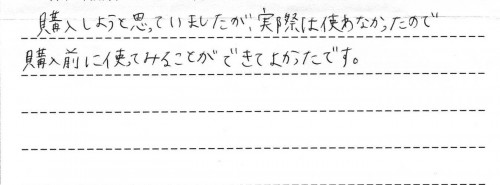 購入しようと思っていましたが、実際は使わなかったので
購入前に使ってみることができてよかったです。